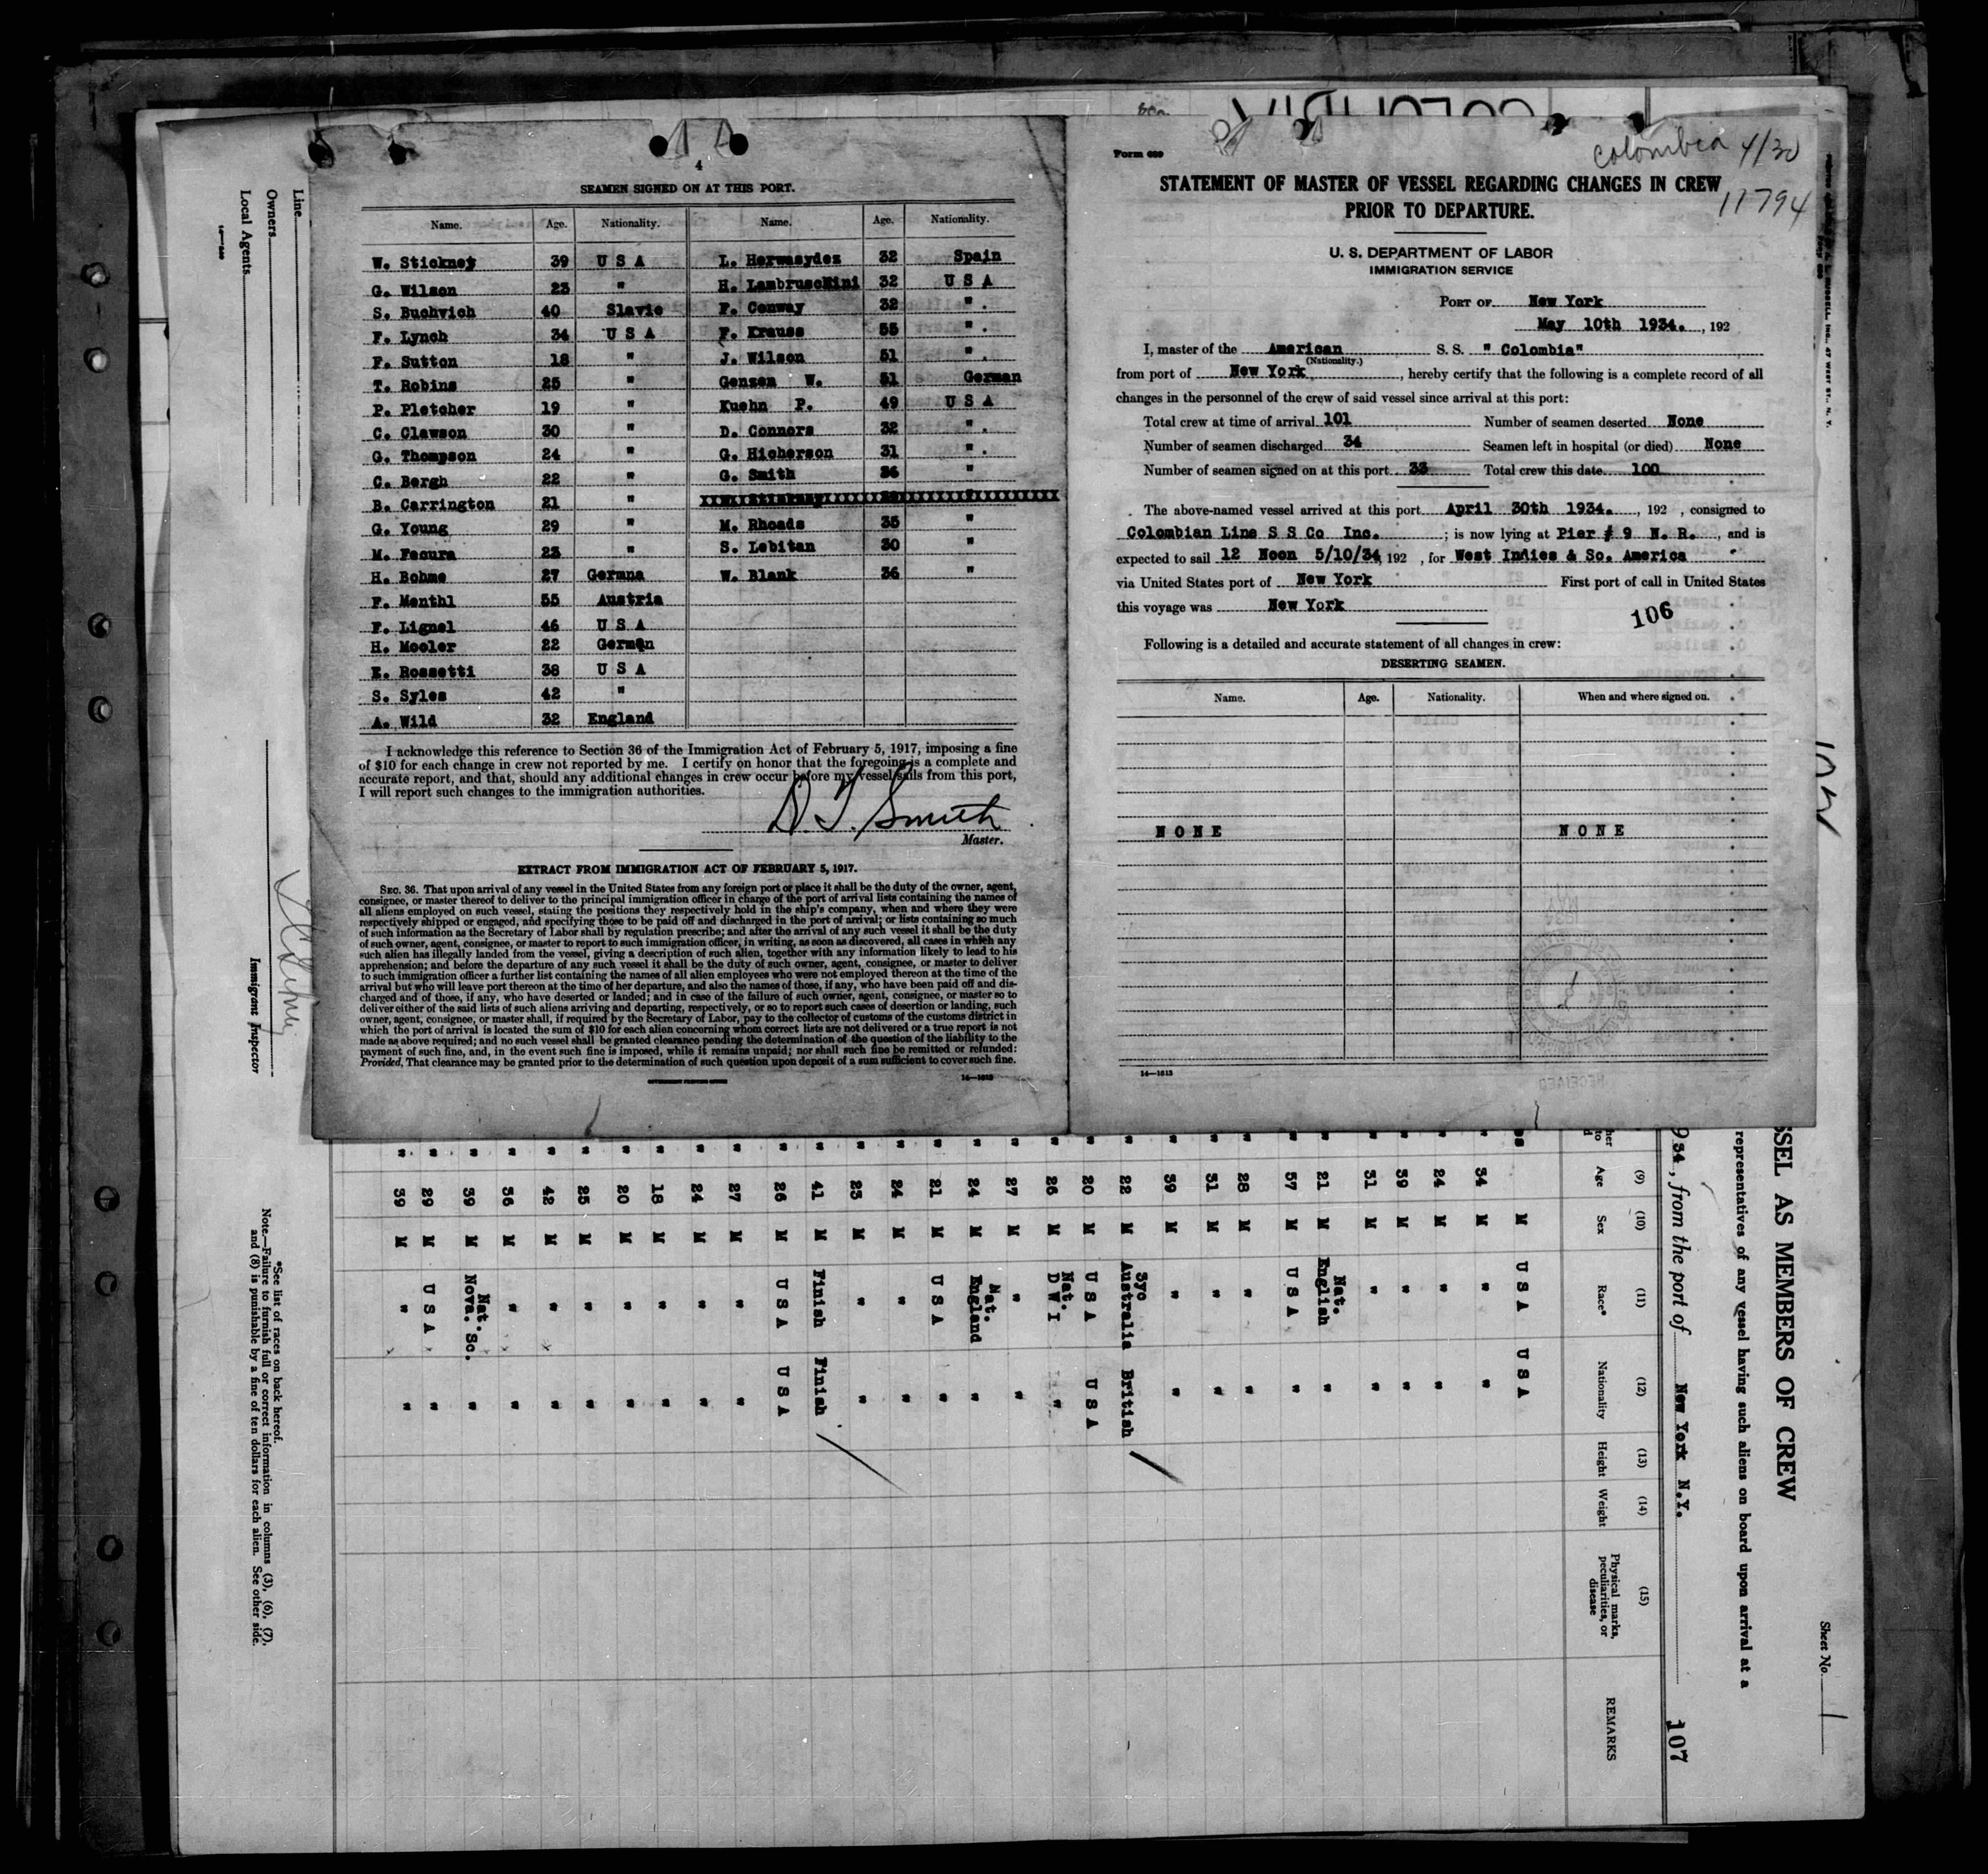 4
SEAMEN SIGNED ON AT THIS PORT.
Name. Age. Nationality. Name. Age. Nationality.
W. Stickney 39 U S A L. Herwasydez 32 Spain
G. Wilson 23 " H. Lambruschini 32 U S A
S. Buchvich 40 Slavic F. Conway 32 ".
F. Lynch 34 U S A F. Krauss 55 ".
F. Sutton 18 " J. Wilson 51 ".
T. Robins 25 " Genzen W. 51 German
P. Pletcher 19 " Kuehn P. 49 U S A
C. Clawson 30 " D. Connors 32 ".
G. Thompson 24 " G. Hicherson 31 ".
C. Bergh 22 " G. Smith 36 "
B. Carrington 21 "
G. Young 29 " M. Rhoads 35 "
M. Fecura 23 " S. Lebitan 30 "
H. Bohme 27 Germna W. Blank 36 "
F. Menthl 55 Austria
F. Lignel 46 U S A
H. Mooler 22 German
E. Rossetti 38 U S A
S. Syles 42 "
A. Wild 32 England
I acknowledge this reference to Section 36 of the Immigration Act of February 5, 1917, imposing a fine
of $10 for each change in crew not reported by me. I certify on honor that the foregoing is a complete and
accurate report, and that, should any additional changes in crew occur before my vessel sails from this port,
I will report such changes to the immigration authorities.
D. T. Smith
Master.
EXTRACT FROM IMMIGRATION ACT OF FEBRUARY 5, 1917.
SEC. 36. That upon arrival of any vessel in the United States from any foreign port or place it shall be the duty of the owner, agent,
consignee, or master thereof to deliver to the principal immigration officer in charge of the port of arrival lists containing the names of
all aliens employed on such vessel, stating the positions they respectively hold in the ship's company, when and where they were
respectively shipped or engaged, and specifying those to be paid off and discharged in the port of arrival; or lists containing so much
of such information as the Secretary of Labor shall by regulation prescribe; and after the arrival of any such vessel it shall be the duty
of such owner, agent, consignee, or master to report to such immigration officer, in writing, as soon as discovered, all cases in which any
such alien has illegally landed from the vessel, giving a description of such alien, together with any information likely to lead to his
apprehension; and before the departure of any such vessel it shall be the duty of such owner, agent, consignee, or master to deliver
to such immigration officer a further list containing the names of all alien employees who were not employed thereon at the time of the
arrival but who will leave port thereon at the time of her departure, and also the names of those, if any, who have been paid off and dis-
charged and of those, if any, who have deserted or landed; and in case of the failure of such owner, agent, consignee, or master so to
deliver either of the said lists of such aliens arriving and departing, respectively, or so to report such cases of desertion or landing, such
owner, agent, consignee, or master shall, if required by the Secretary of Labor, pay to the collector of customs of the customs district in
which the port of arrival is located the sum of $10 for each alien concerning whom correct lists are not delivered or a true report is not
made as above required; and no such vessel shall be granted clearance pending the determination of the question of the liability to the
payment of such fine, and, in the event such fine is imposed, while it remains unpaid; nor shall such fine be remitted or refunded:
Provided, That clearance may be granted prior to the determination of such question upon deposit of a sum sufficient to cover such fine.
GOVERNMENT PRINTING OFFICE 14—1813
COLOMBIA
Form 689
Colombia 4/30
11794
STATEMENT OF MASTER OF VESSEL REGARDING CHANGES IN CREW
PRIOR TO DEPARTURE.
U. S. DEPARTMENT OF LABOR
IMMIGRATION SERVICE
PORT OF New York
May 10th 1934. , 192
I, master of the American S. S. " Colombia"
(Nationality.)
from port of New York , hereby certify that the following is a complete record of all
changes in the personnel of the crew of said vessel since arrival at this port:
Total crew at time of arrival 101 Number of seamen deserted None
Number of seamen discharged 34 Seamen left in hospital (or died) None
Number of seamen signed on at this port 33 Total crew this date 100
The above-named vessel arrived at this port April 30th 1934. , 192 , consigned to
Colombian Line S S Co Inc. ; is now lying at Pier # 9 N. R. , and is
expected to sail 12 Noon 5/10/34, 192 , for West Indies & So. America
via United States port of New York First port of call in United States
this voyage was New York
106
Following is a detailed and accurate statement of all changes in crew:
DESERTING SEAMEN.
Name. Age. Nationality. When and where signed on.
N O N E N O N E
14—1813
RECEIVED
Line
Owners
Local Agents
Immigrant Inspector
*See list of races on back hereof.
Note.—Failure to furnish full or correct information in columns (3), (6), (7),
and (8) is punishable by a fine of ten dollars for each alien. See other side.
Sheet No. 1
SSEL AS MEMBERS OF CREW
representatives of any vessel having such aliens on board upon arrival at a
934, from the port of New York N.Y. 107
(9) (10) (11) (12) (13) (14) (15)
Age Sex Race* Nationality Height Weight Physical marks, peculiarities, or disease REMARKS
M U S A U S A
" 34 M " "
" 24 M " "
" 39 M " "
" 31 M " "
" 21 M Nat. English "
" 57 M U S A "
" 28 M " "
" 31 M " "
" 39 M " "
" 22 M Syc Australia British
" 20 M U S A U S A
" 26 M Nat. D W I "
" 27 M " "
" 24 M Nat. England "
" 21 M U S A "
" 24 M " "
" 23 M " "
" 41 M Finish Finish
" 26 M U S A U S A
" 27 M " "
" 24 M " "
" 18 M " "
" 20 M " "
" 25 M " "
" 42 M " "
" 36 M " "
" 39 M Nat. Nova. Sc. "
" 29 M U S A "
" 39 M " "